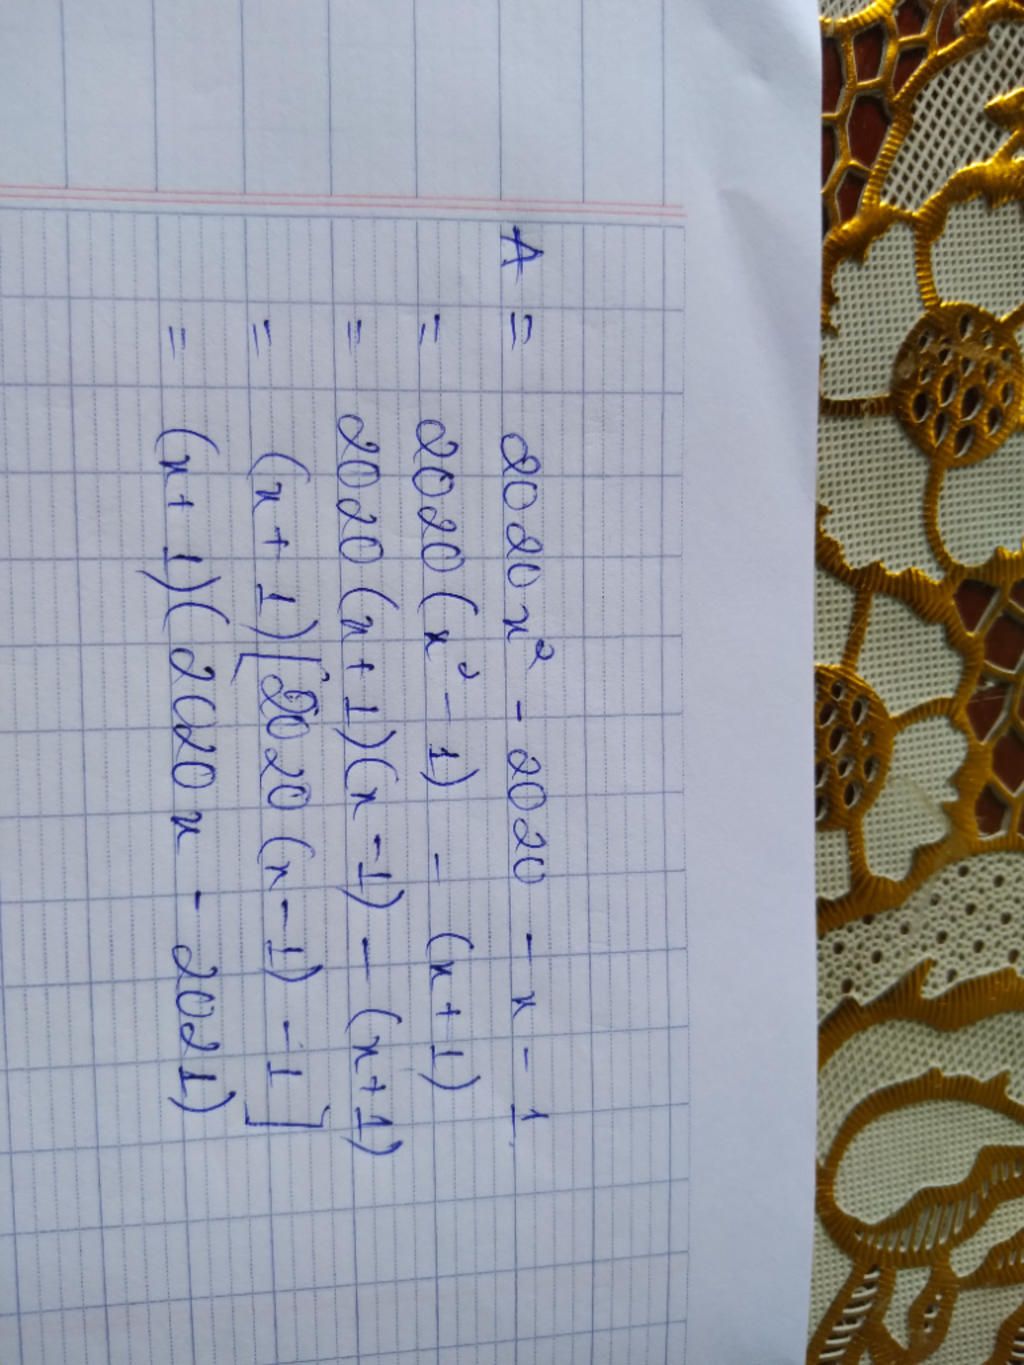 A = 2020x² - 2020 - x - 1
= 2020(x² - 1) - (x + 1)
= 2020(x + 1)(x - 1) - (x + 1)
= (x + 1)[2020(x - 1) - 1]
= (x + 1)(2020x - 2021)